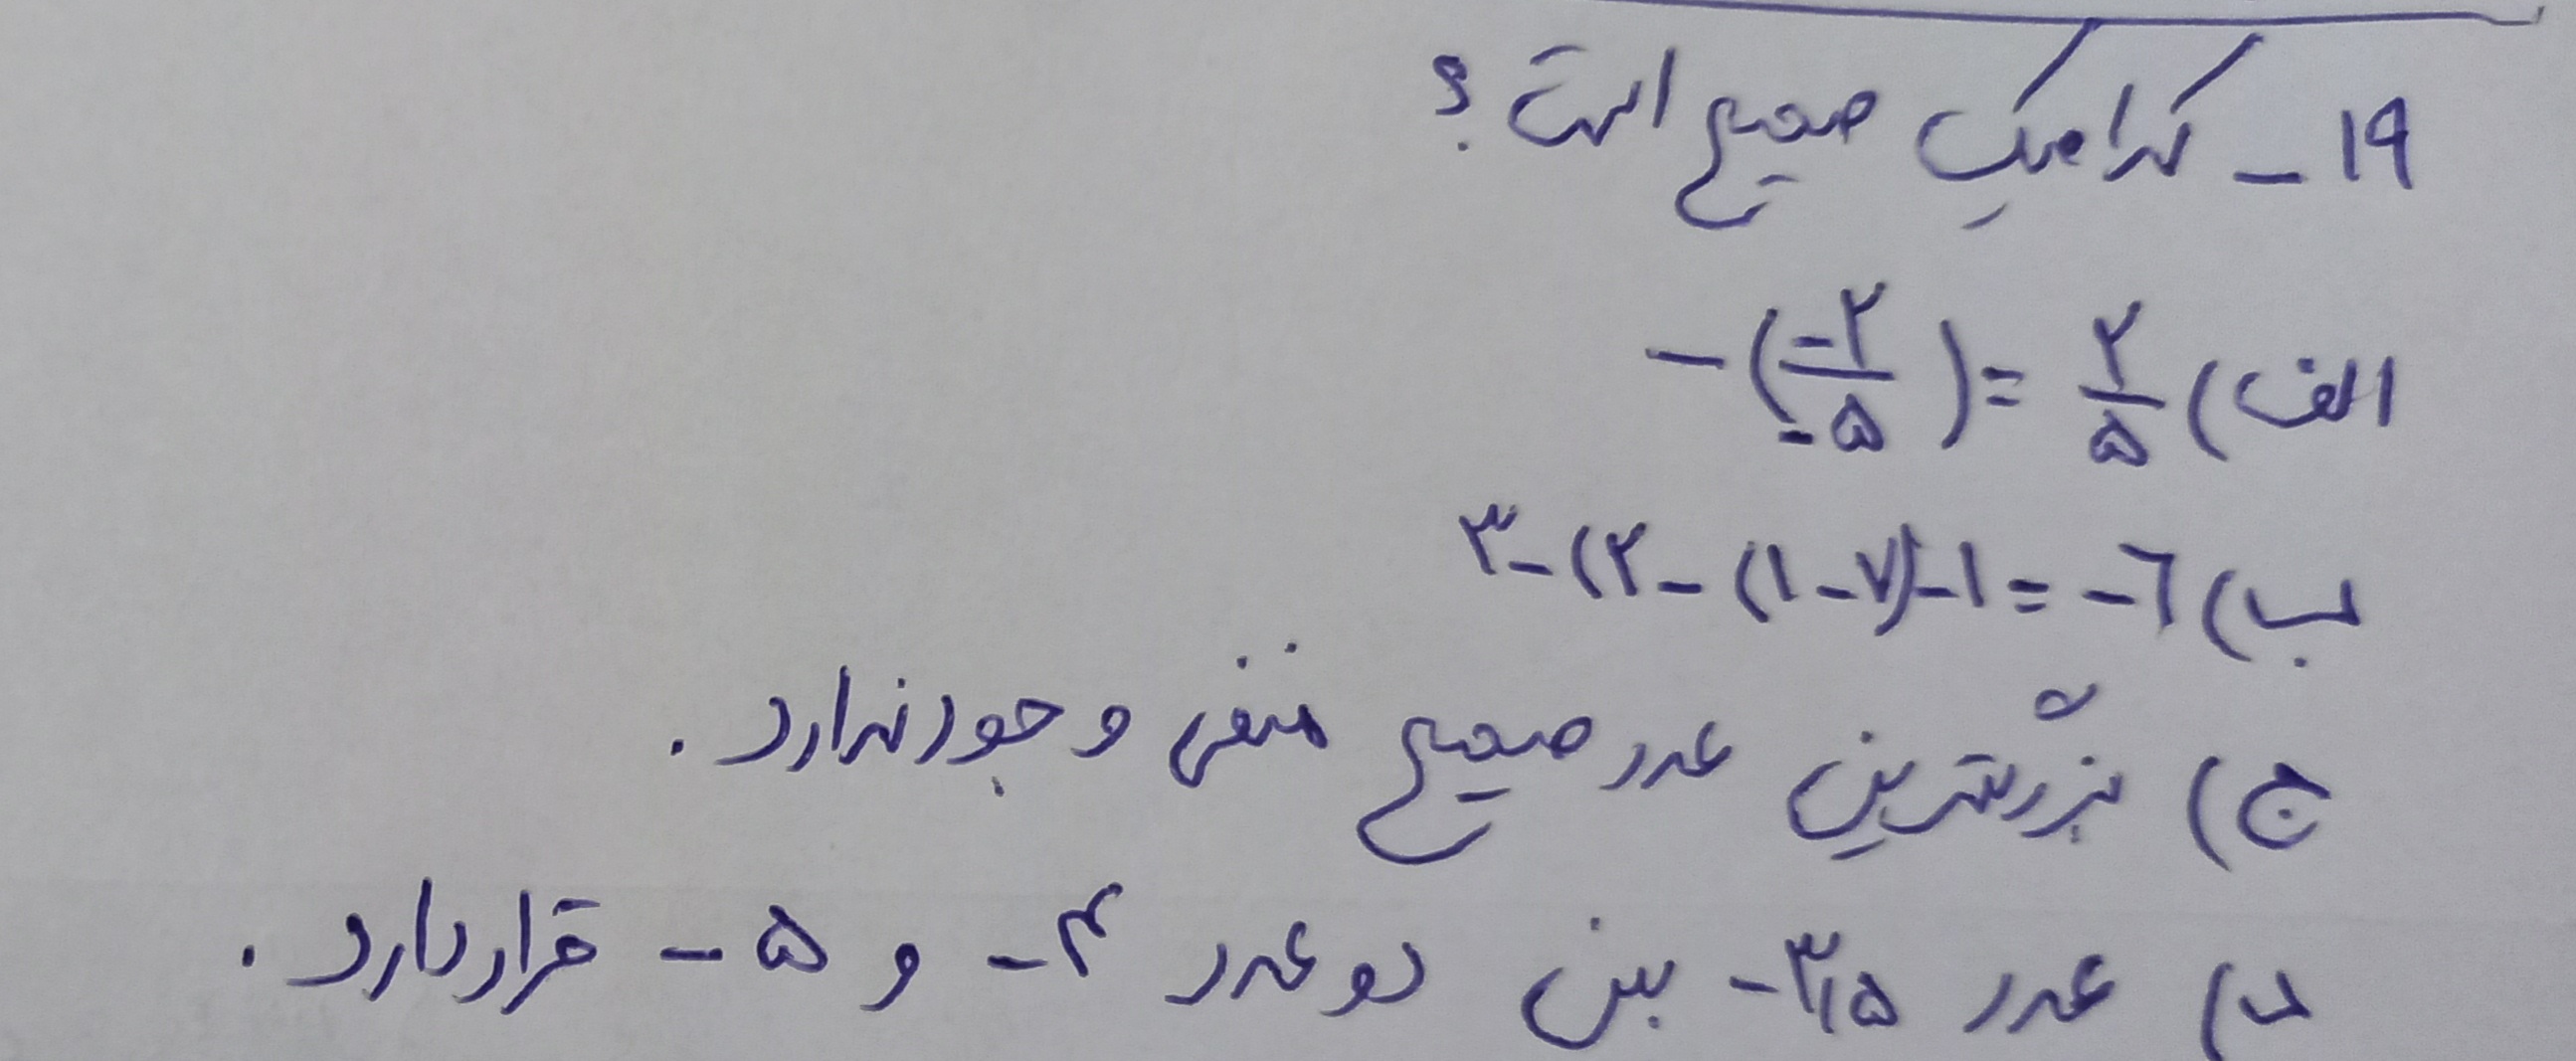 ۱۹ـ کدامیک صحیح است؟
الف) -(-۲/-۵) = ۲/۵
ب) ۳-(۲-(۱-۷)-۱ = -۶
ج) بزرگترین عدد صحیح منفی وجود ندارد.
د) عدد -۳/۵ بین دو عدد -۴ و -۵ قرار دارد.